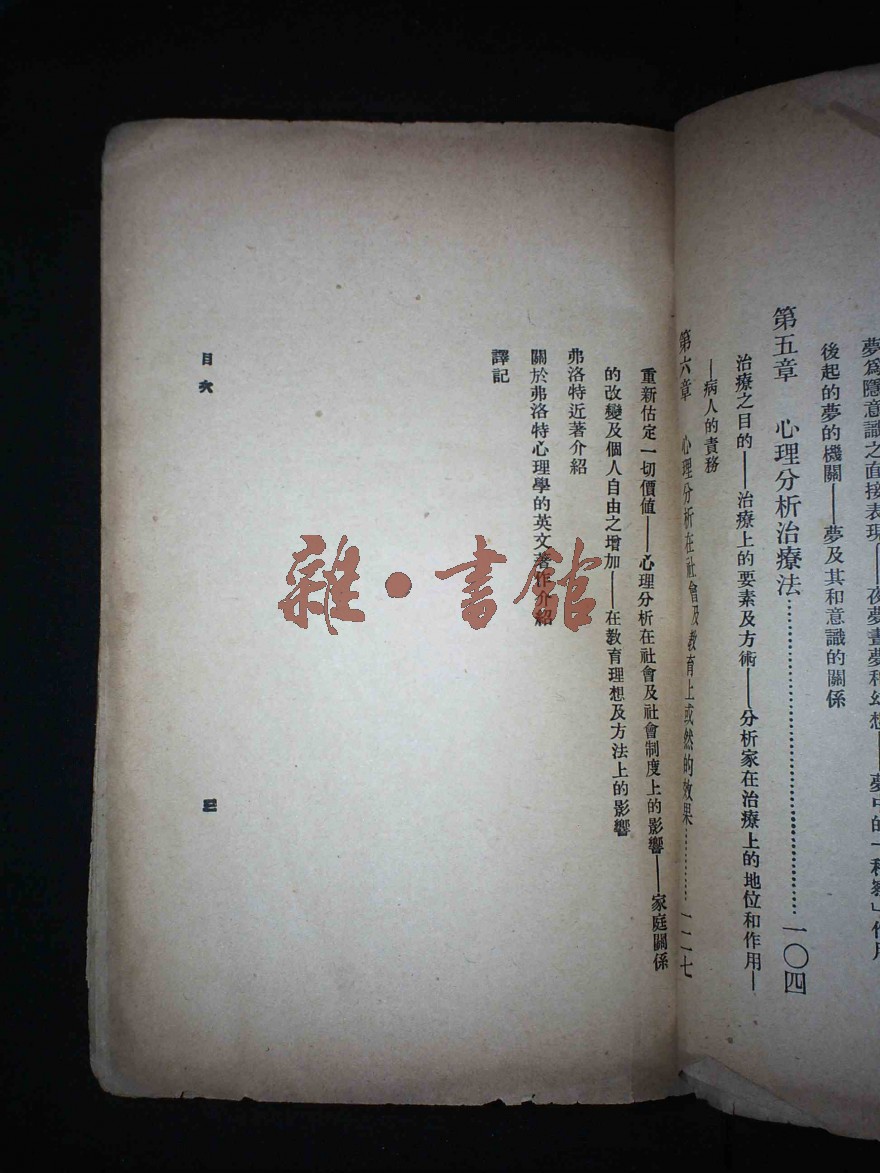 夢爲隱意識之直接表現——夜夢晝夢和幻想——夢中的「稽察」作用
後起的夢的機關——夢及其和意識的關係
第五章 心理分析治療法…………………………一〇四
治療之目的——治療上的要素及方術——分析家在治療上的地位和作用—
—病人的責務
第六章 心理分析在社會及教育上或然的效果…………一二七
重新估定一切價値——心理分析在社會及社會制度上的影響——家庭關係
的改變及個人自由之增加——在教育理想及方法上的影響
弗洛特近著介紹
關於弗洛特心理學的英文著作介紹
譯記
目次
三
雜·書館